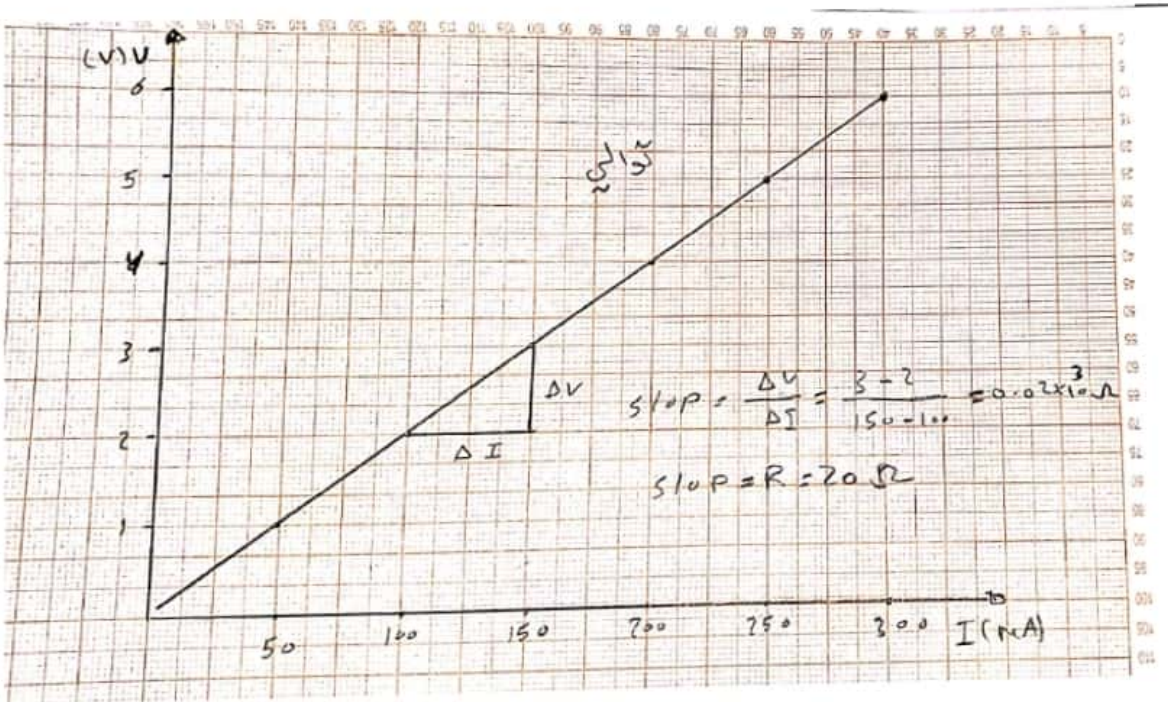 (V) V
6
5
4
3
2
1
ΔV
ΔI
slop = ΔV/ΔI = 3-2/150-100 = 0.02x10³ Ω
slop = R = 20 Ω
50 100 150 200 250 300 I (mA)